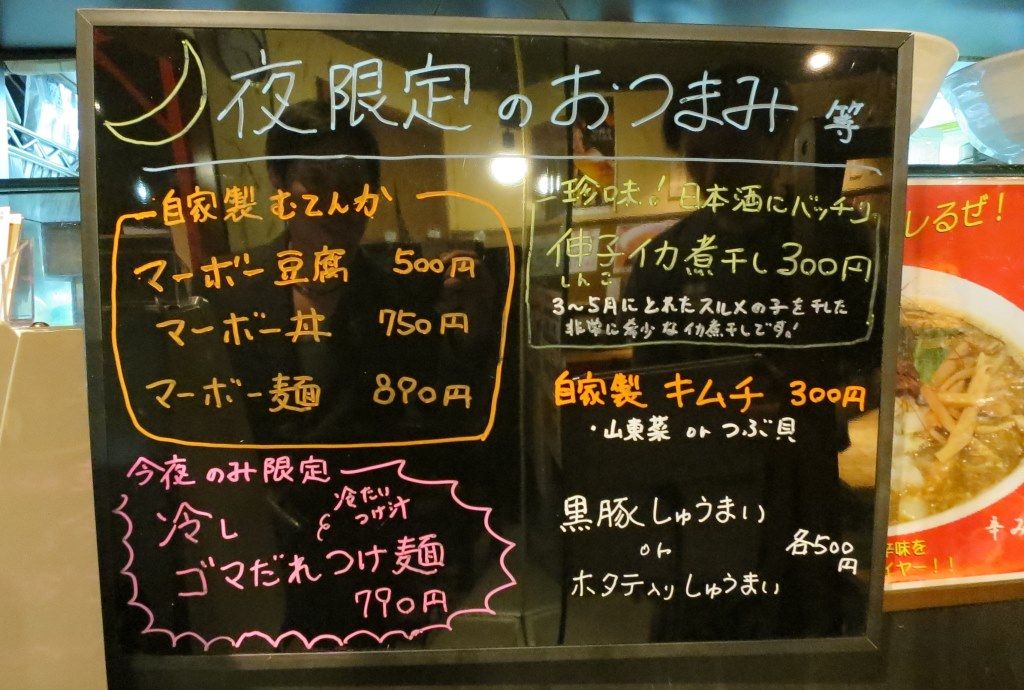 夜限定のおつまみ 等
自家製むてんか
マーボー豆腐 500円
マーボー丼 750円
マーボー麺 890円
今夜のみ限定
冷たい
つけ汁
冷し
ゴマだれつけ麺
790円
珍味！日本酒にバッチリ
伸子イカ煮干し300円
しんこ
3〜5月にとれたスルメの子を干した
非常に希少なイカ煮干しです！
自家製 キムチ 300円
・山東菜 or つぶ貝
黒豚しゅうまい
or
ホタテ入りしゅうまい
各500
円
しるぜ！
辛み
辛味を
イヤー！！